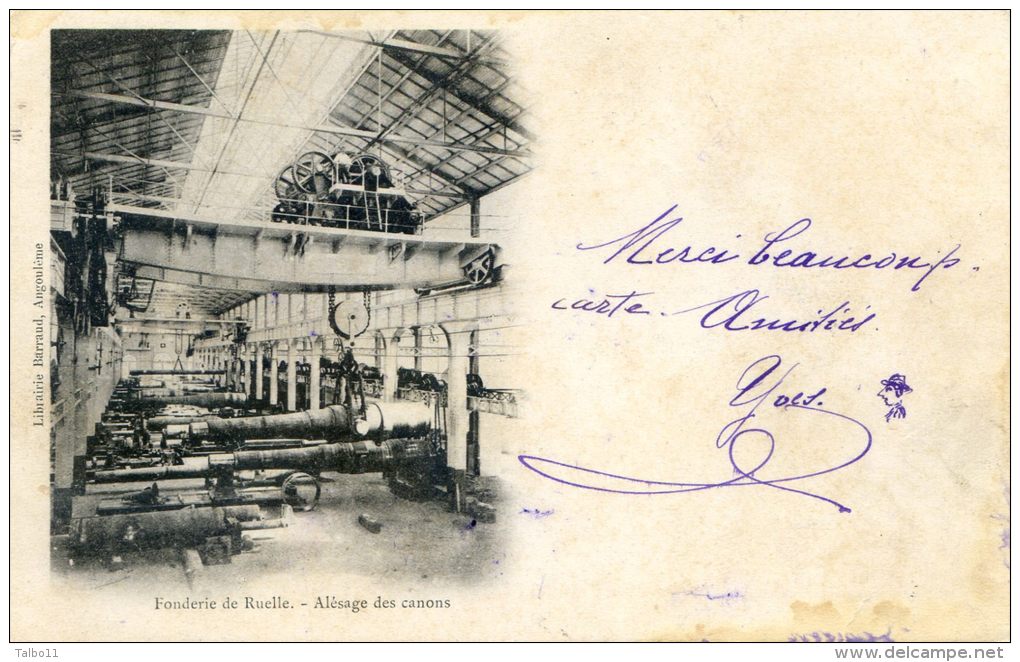 Librairie Barraud, Angoulême
Merci beaucoup.
carte. Amitiés.
Yves.
Fonderie de Ruelle. - Alésage des canons
Talbo11
www.delcampe.net